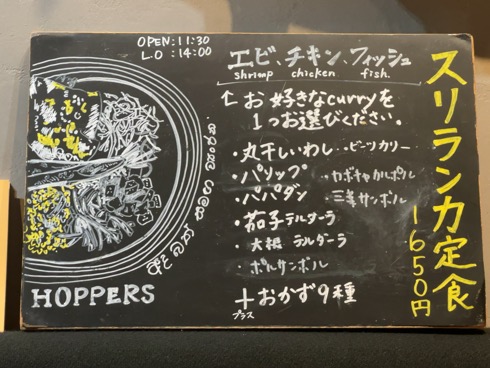 OPEN:11:30
L.O :14:00
エビ、チキン、フィッシュ
shrimp chicken fish.
↑お好きなcurryを
1つお選びください。
・丸干しいわし
・ビーツカリー
・パリップ
・パパダン
・茄子テルダーラ
・大根テルダーラ
・ポルサンボル
+おかず9種
プラス
スリランカ定食
1650円
HOPPERS